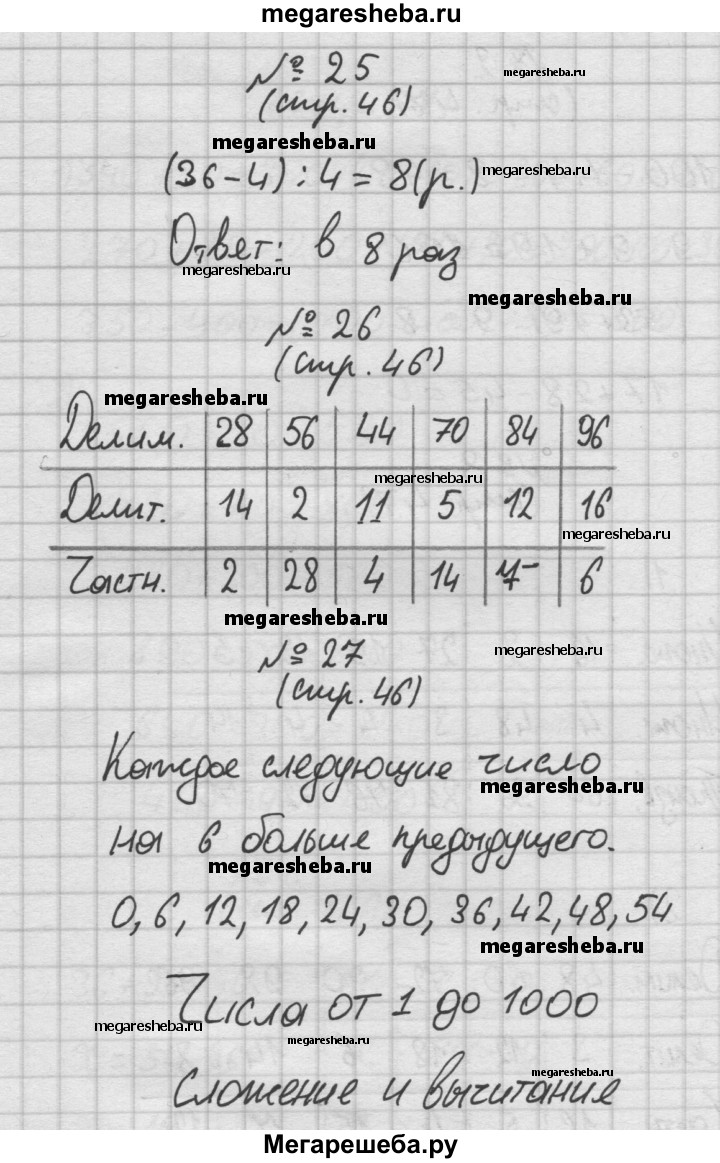 megaresheba.ru
№ 25
megaresheba.ru
(стр. 46)
megaresheba.ru
(36-4):4=8(р.)
megaresheba.ru
Ответ: в 8 раз
megaresheba.ru
megaresheba.ru
№ 26
(стр. 46)
megaresheba.ru
Делим. 28 56 44 70 84 96
megaresheba.ru
Делит. 14 2 11 5 12 16
megaresheba.ru
Частн. 2 28 4 14 7 6
megaresheba.ru
№ 27
megaresheba.ru
(стр. 46)
Каждое следующие число
megaresheba.ru
на 6 больше предыдущего.
megaresheba.ru
0, 6, 12, 18, 24, 30, 36, 42, 48, 54
megaresheba.ru
Числа от 1 до 1000
megaresheba.ru
megaresheba.ru
megaresheba.ru
Сложение и вычитание
Мегарешеба.ру